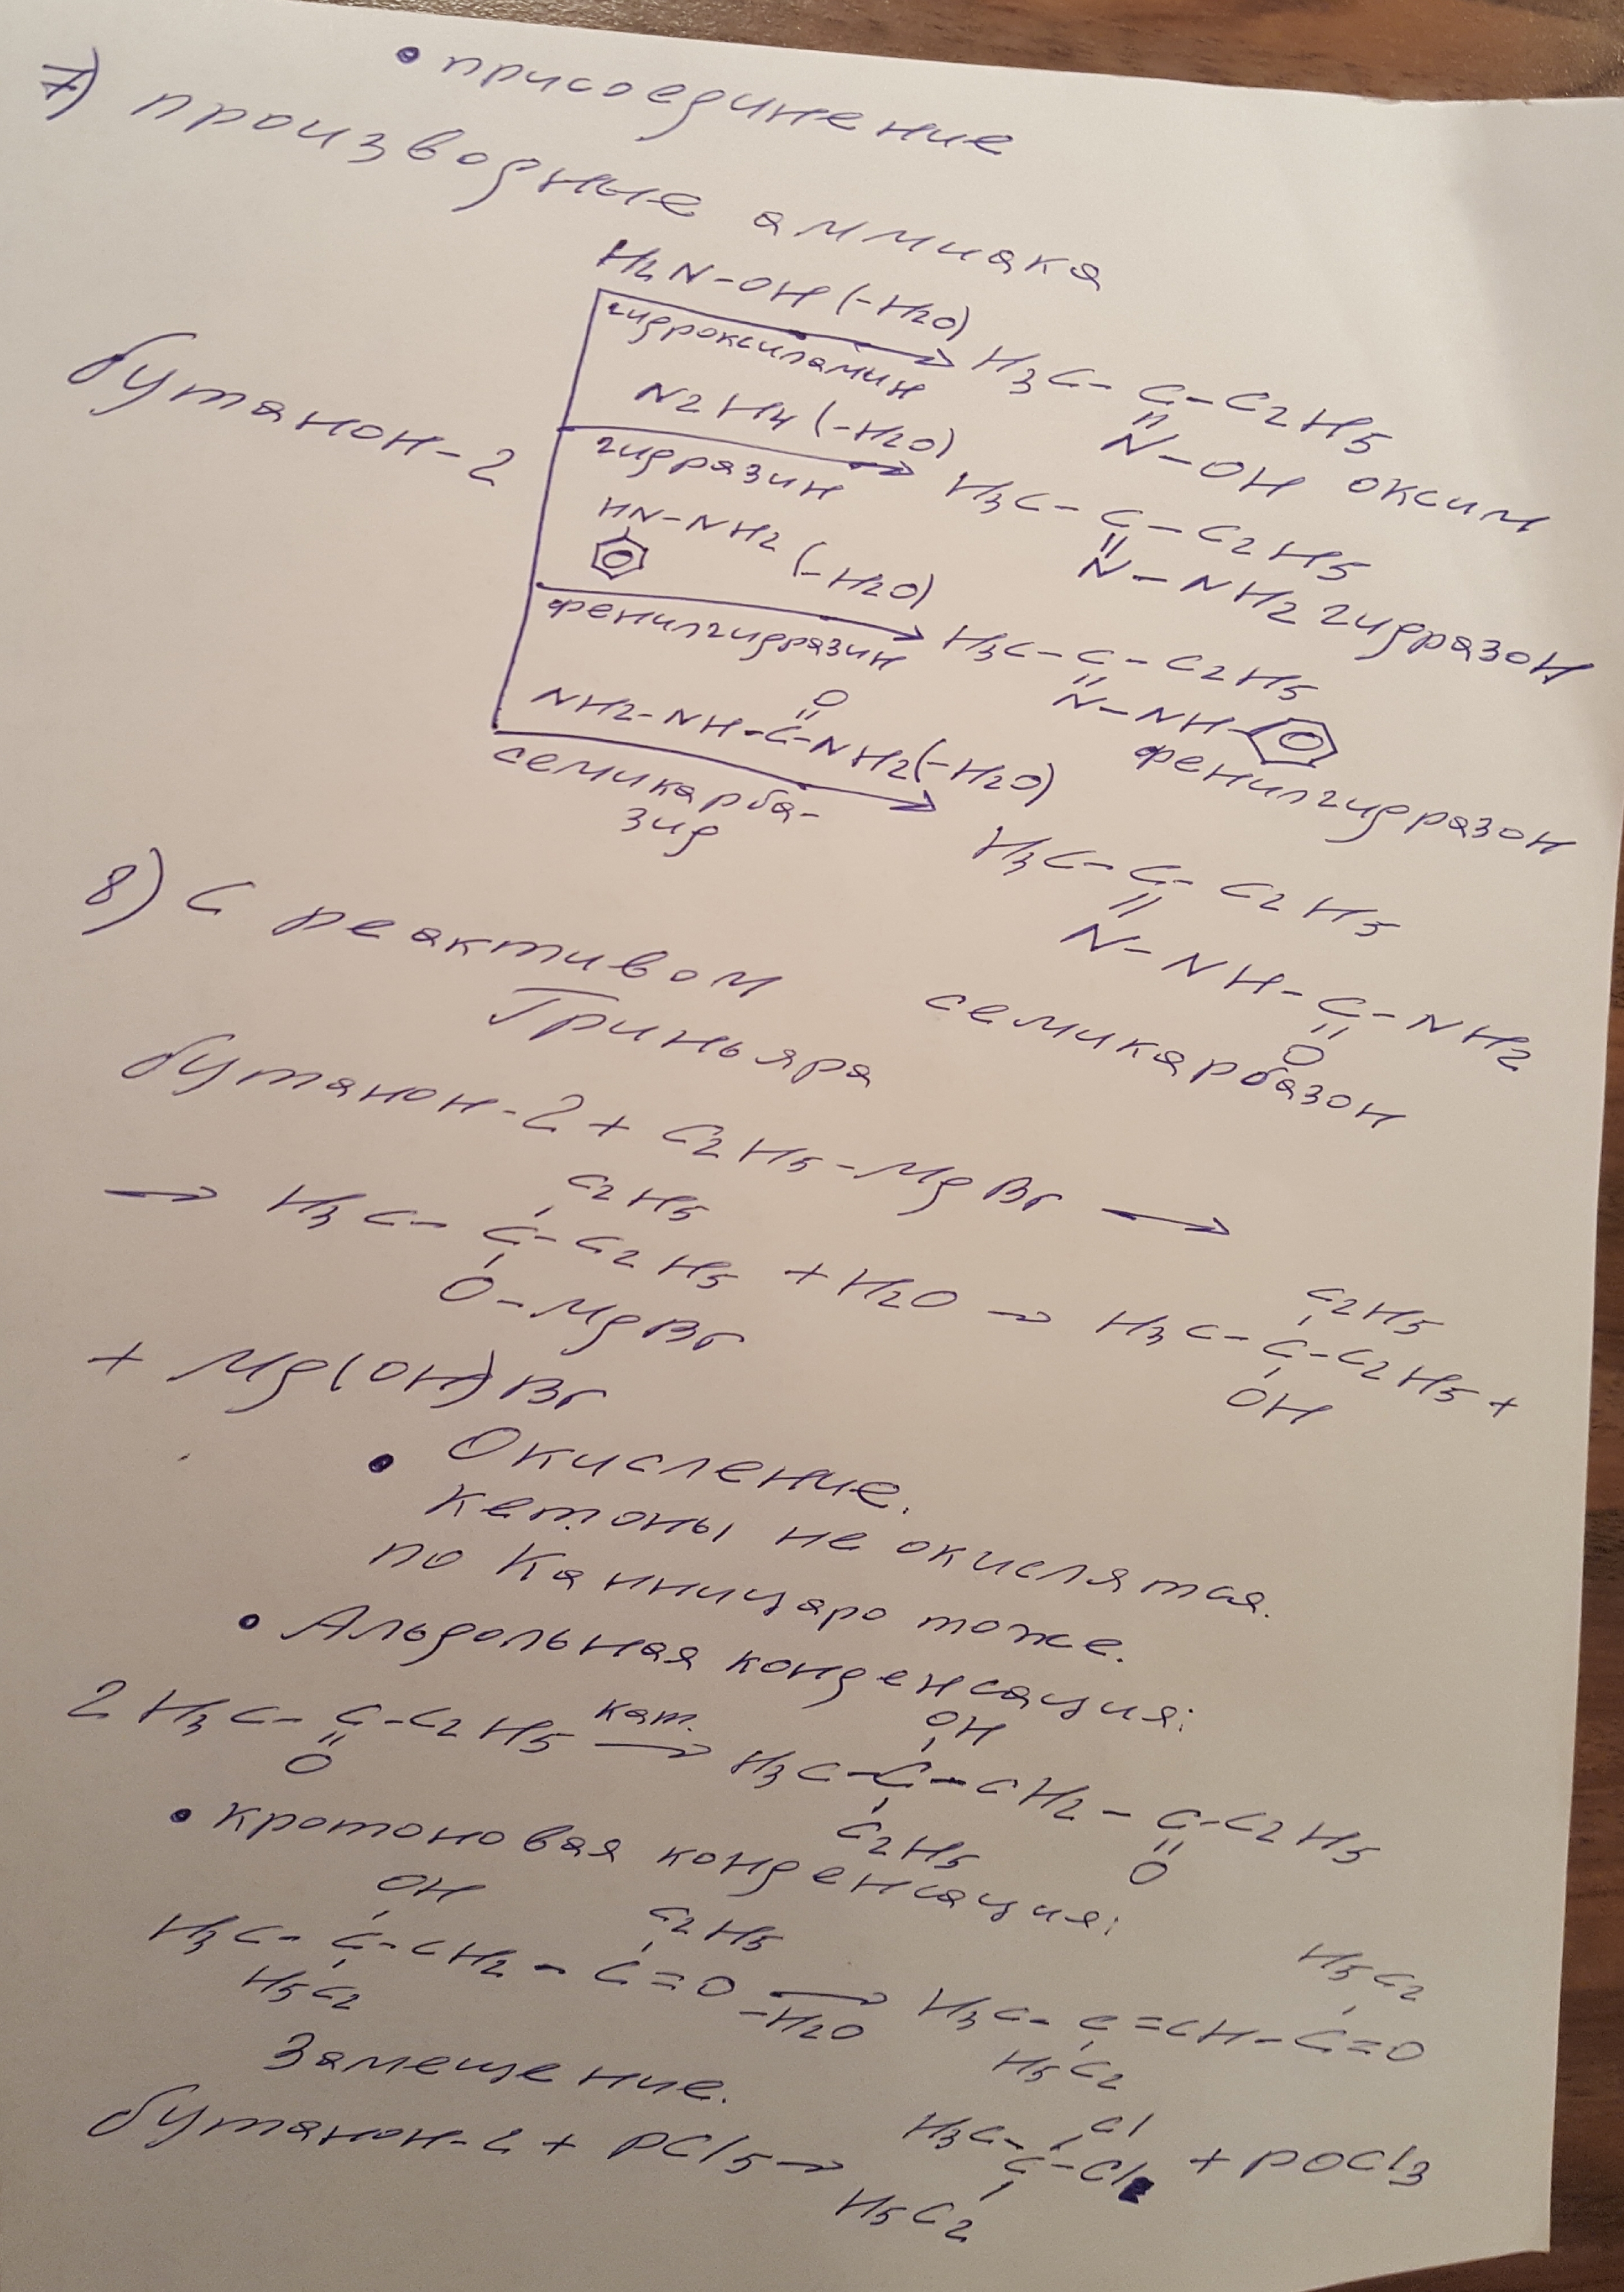 • присоединение
7) производные аммиака
H2N-OH (-H2O)
гидроксиламин
H3C-C-C2H5
N-OH оксим
бутанон-2
N2H4 (-H2O)
гидразин
H3C-C-C2H5
N-NH2 гидразон
HN-NH2 (-H2O)
фенилгидразин
H3C-C-C2H5
N-NH-
фенилгидразон
O
NH2-NH-C-NH2 (-H2O)
семикарба-
зид
H3C-C-C2H5
N-NH-C-NH2
O
семикарбазон
8) С реактивом
Гриньяра
бутанон-2 + C2H5-MgBr →
C2H5 C2H5
→ H3C-C-C2H5 + H2O → H3C-C-C2H5 +
O-MgBr OH
+ Mg(OH)Br
• Окисление.
Кетоны не окислятся.
по Канниццаро тоже.
• Альдольная конденсация:
OH
2 H3C-C-C2H5 кат. → H3C-C-CH2-C-C2H5
O C2H5 O
• кротоновая конденсация:
OH C2H5 H5C2
H3C-C-CH2-C=O → H3C-C=CH-C=O
H5C2 -H2O H5C2
Замещение.
Cl
бутанон-2 + PCl5 → H3C-C-Cl + POCl3
H5C2